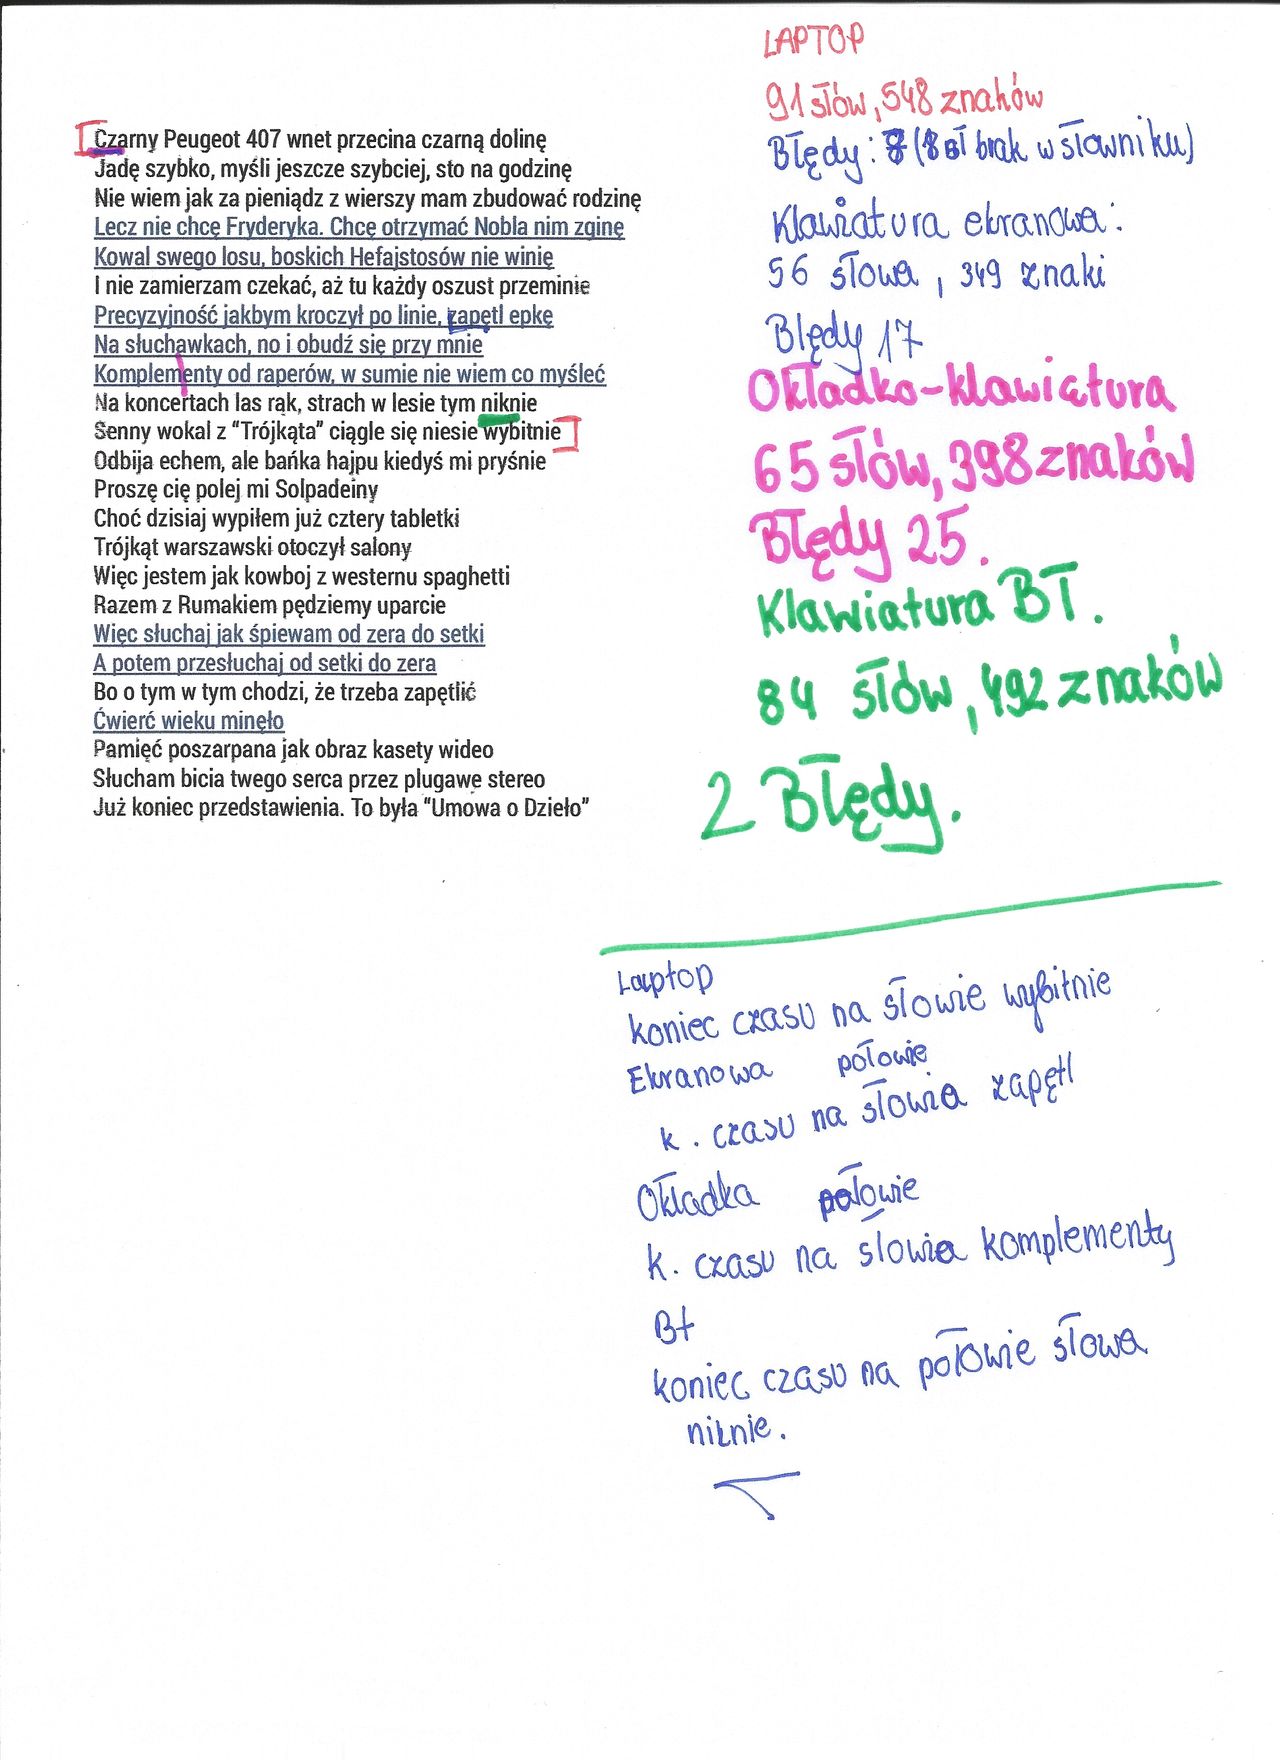 Czarny Peugeot 407 wnet przecina czarną dolinę
Jadę szybko, myśli jeszcze szybciej, sto na godzinę
Nie wiem jak za pieniądz z wierszy mam zbudować rodzinę
Lecz nie chcę Fryderyka. Chcę otrzymać Nobla nim zginę
Kowal swego losu, boskich Hefajstosów nie winię
I nie zamierzam czekać, aż tu każdy oszust przeminie
Precyzyjność jakbym kroczył po linie, zapętl epkę
Na słuchawkach, no i obudź się przy mnie
Komplementy od raperów, w sumie nie wiem co myśleć
Na koncertach las rąk, strach w lesie tym niknie
Senny wokal z "Trójkąta" ciągle się niesie wybitnie
Odbija echem, ale bańka hajpu kiedyś mi pryśnie
Proszę cię polej mi Solpadeiny
Choć dzisiaj wypiłem już cztery tabletki
Trójkąt warszawski otoczył salony
Więc jestem jak kowboj z westernu spaghetti
Razem z Rumakiem pędziemy uparcie
Więc słuchaj jak śpiewam od zera do setki
A potem przesłuchaj od setki do zera
Bo o tym w tym chodzi, że trzeba zapętlić
Ćwierć wieku minęło
Pamięć poszarpana jak obraz kasety wideo
Słucham bicia twego serca przez plugawe stereo
Już koniec przedstawienia. To była "Umowa o Dzieło"
LAPTOP
91 słów, 548 znaków
Błędy: 8 (8 bł brak w słowniku)
Klawiatura ekranowa:
56 słowa, 349 znaki
Błędy 17
Okładko-klawiatura
65 słów, 398 znaków
Błędy 25.
Klawiatura BT.
84 słów, 492 znaków
2 Błędy.
Laptop
koniec czasu na słowie wybitnie
Ekranowa połowie
k. czasu na słowia zapętl
Okładka połowie
k. czasu na słowia komplementy
Bt
koniec czasu na połowie słowa
niknie.